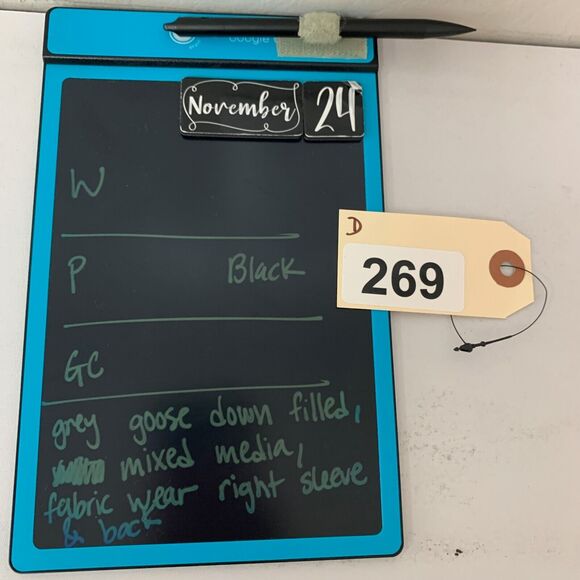 Google
November 24
W
D
269
P Black
GC
grey goose down filled,
mixed media,
fabric wear right sleeve
& back